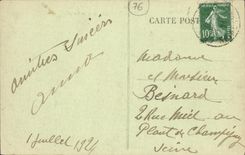 76
CARTE POST
10
amitiés sincères
1 Juillet 1924
Madame
et Monsieur
Besnard
2 Rue Miel au
Plant de Champigny
Seine